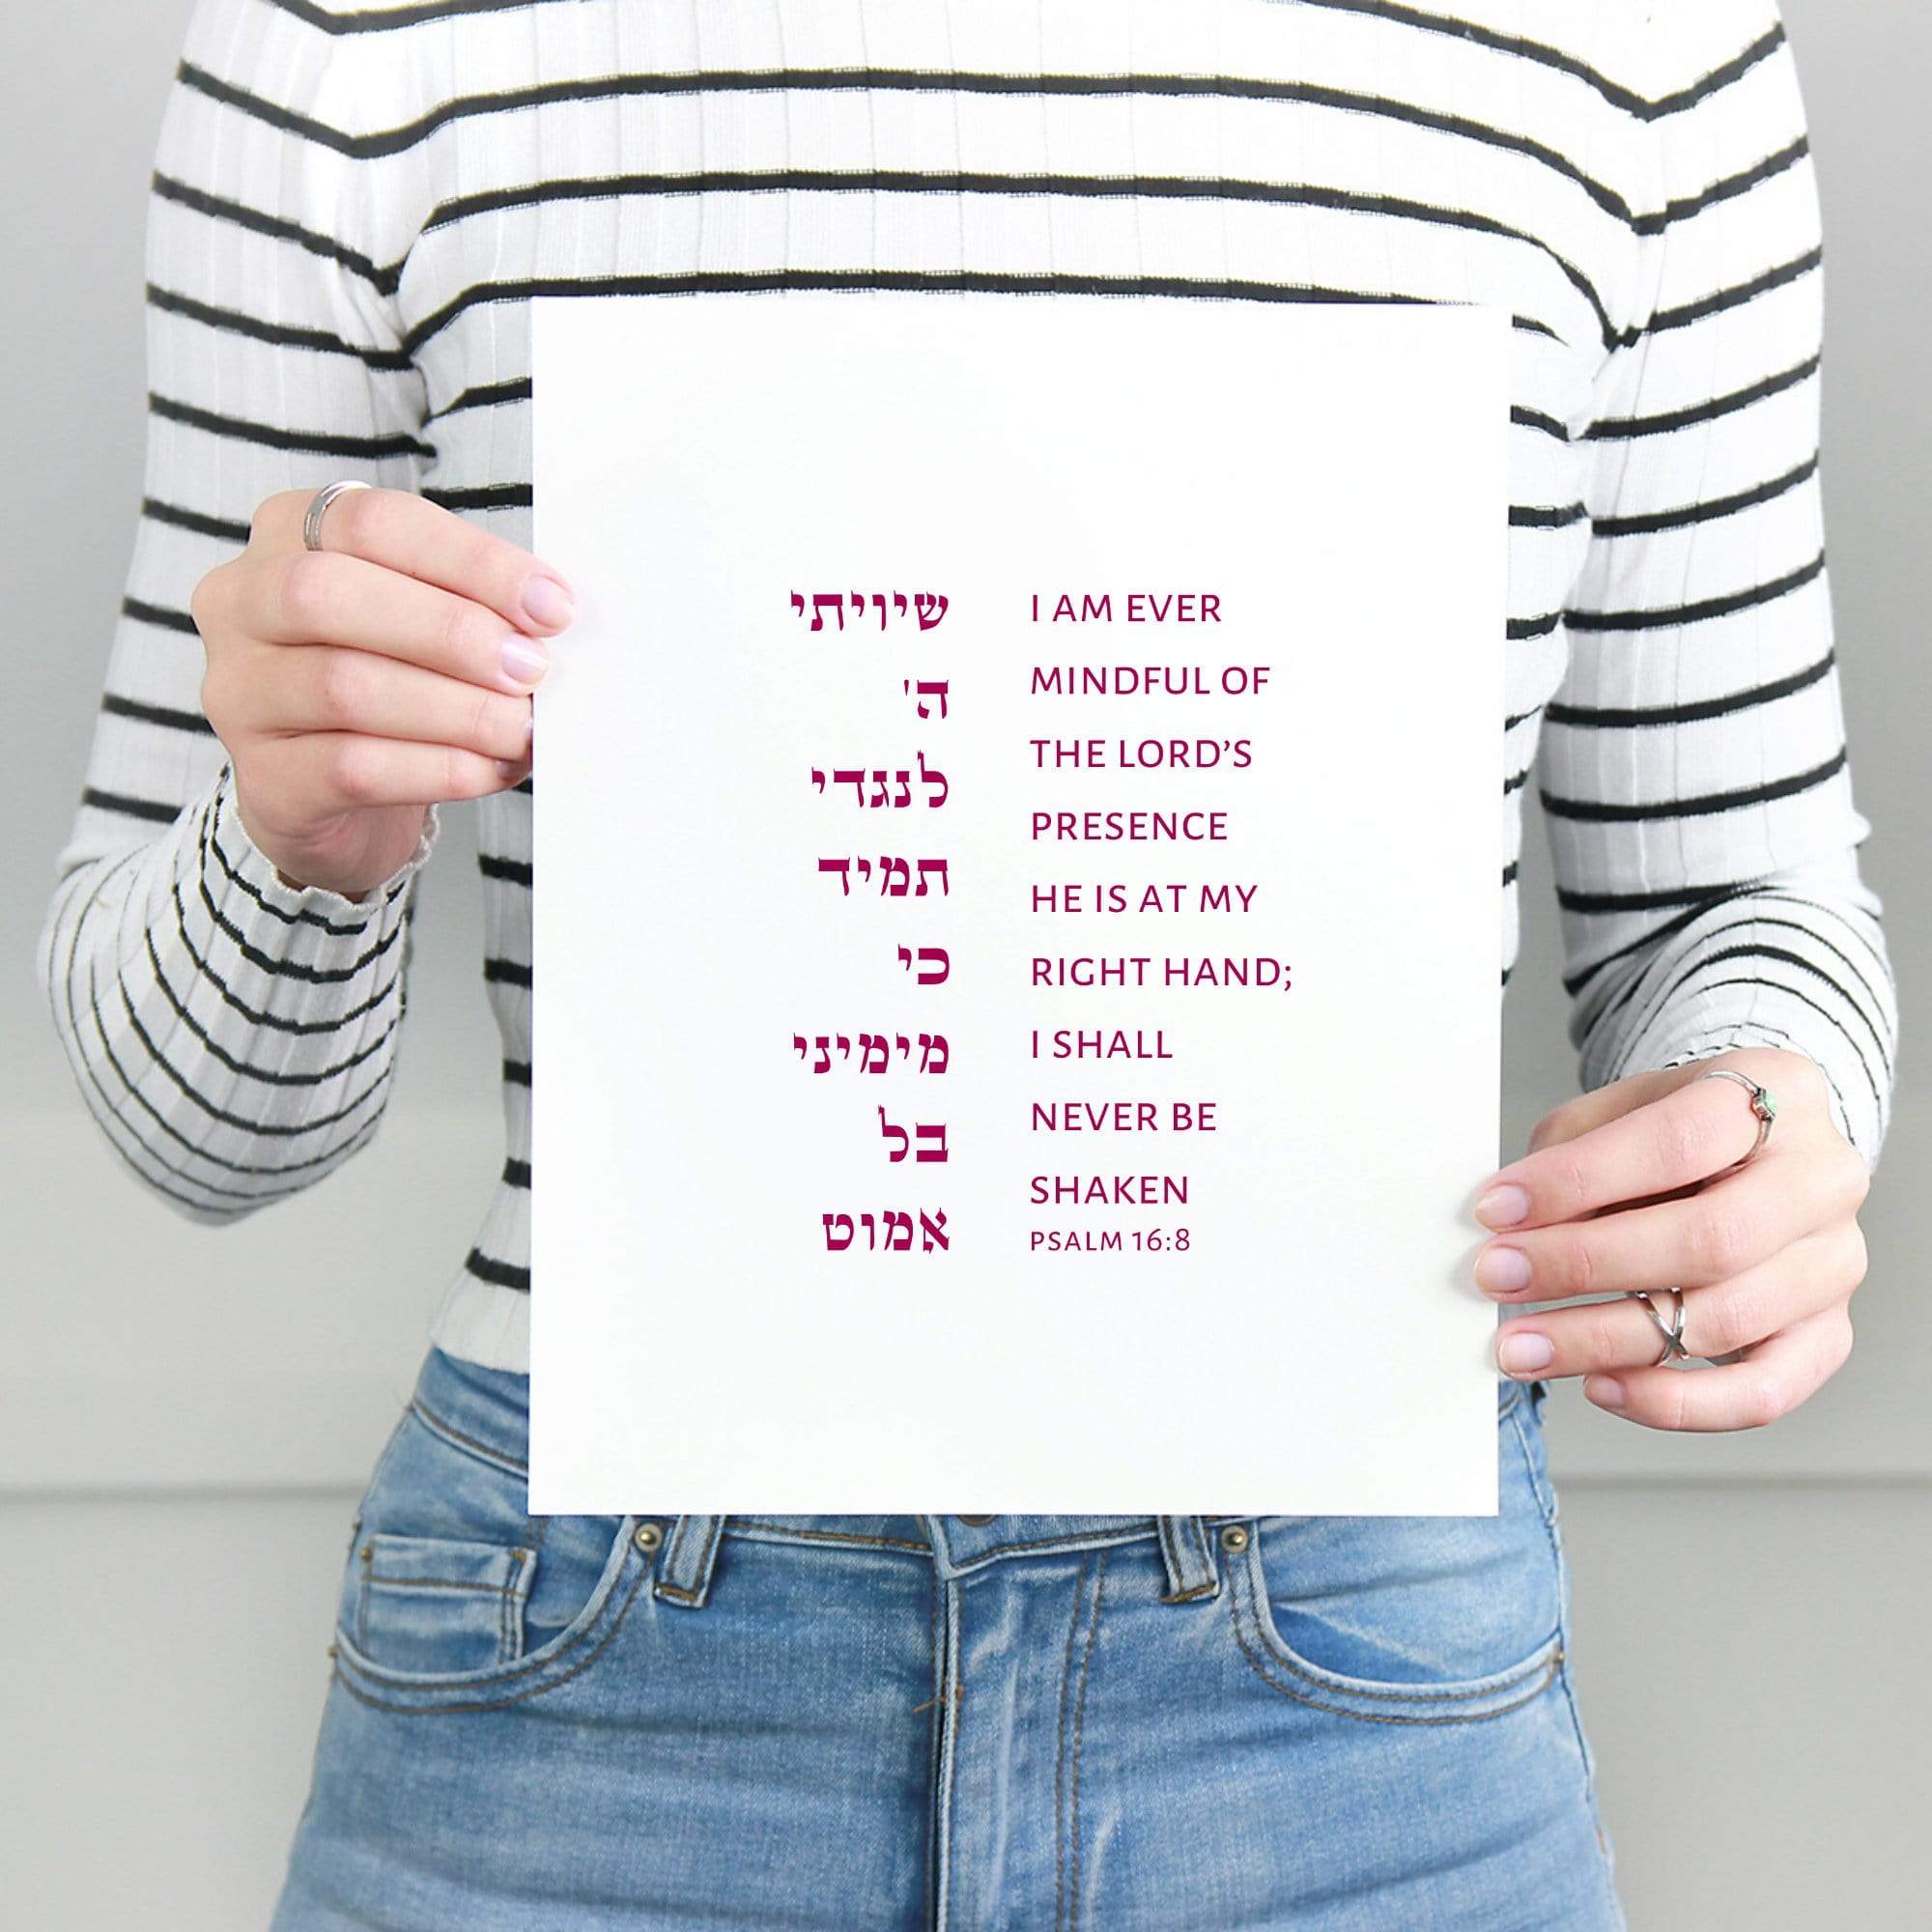 שיויתי
ה'
לנגדי
תמיד
כי
מימיני
בל
אמוט
I AM EVER
MINDFUL OF
THE LORD’S
PRESENCE
HE IS AT MY
RIGHT HAND;
I SHALL
NEVER BE
SHAKEN
PSALM 16:8